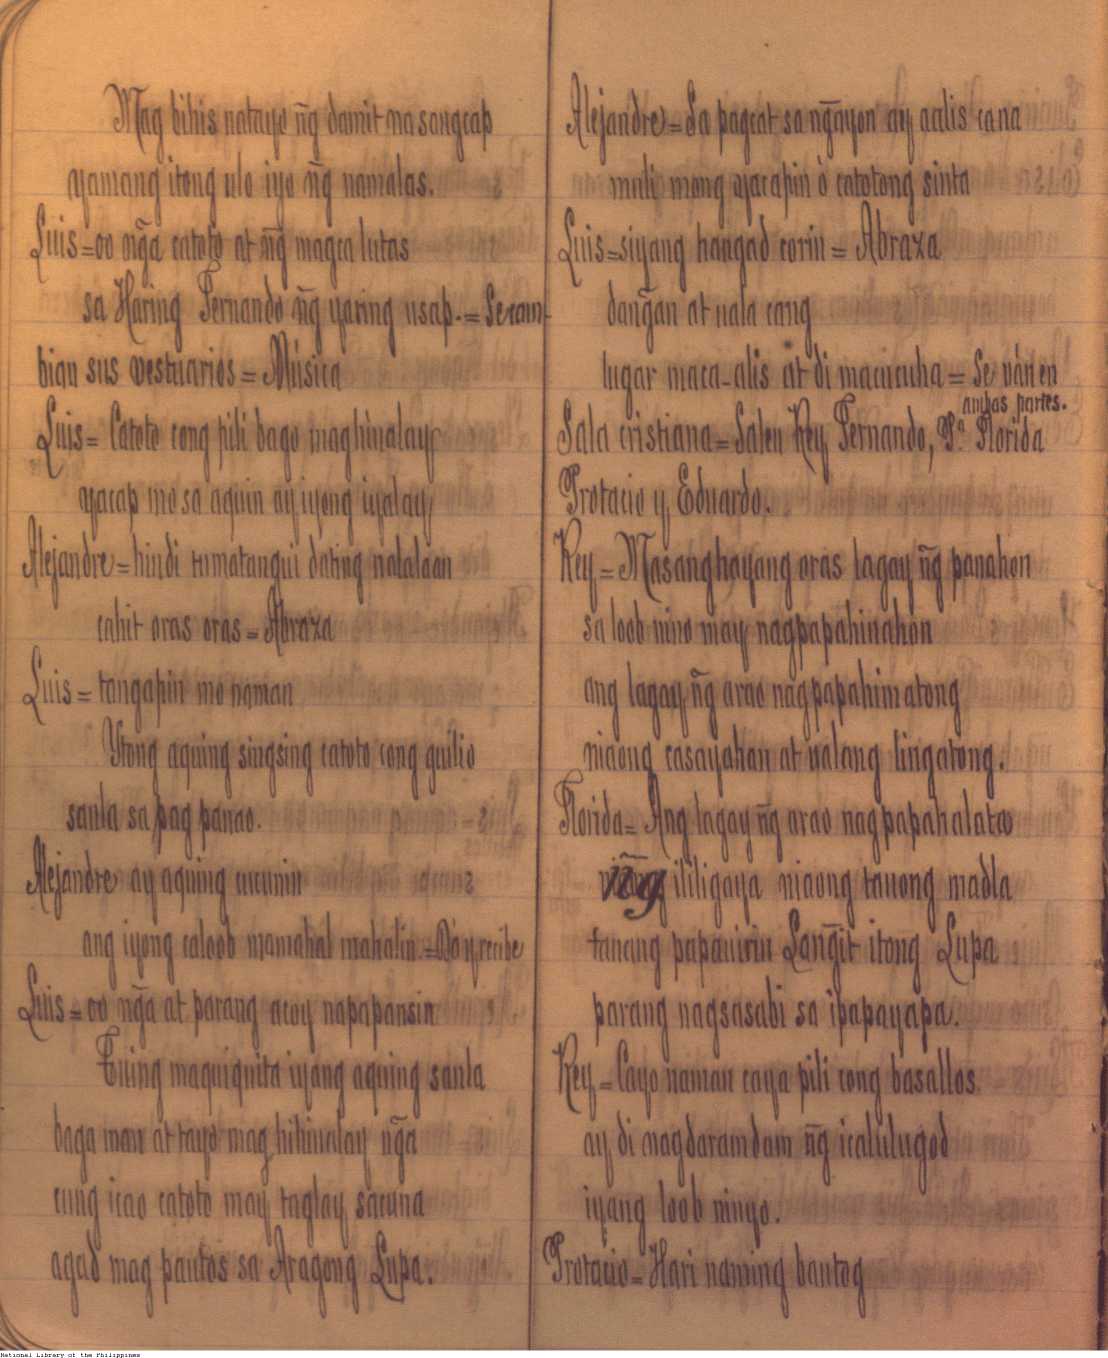 Mag bihis natayo n͠g damit na sangcap
yamang itong ulo iyo n͠g namalas.
Luis=oo n͠ga catoto at n͠g magca lutas
sa Haring Fernando n͠g yaring usap.=Se cam-
bian sus vestuarios=Música
Luis=Catoto cong pili bago maghìnalay
yacap mo sa aquin ay iyong iyalay
Alejandre=hindi tumatangui dating nalalaan
cahit oras oras=Abraza
Luis=tangapin mo naman
Ytong aquing singsing catoto cong guilio
sanla sa pag panao.
Alejandre ay aquing cucunin
ang iyong caloob mamahal mahalin.=Dá y recibe
Luis=oo n͠ga at parang acoy napapansin
Tuing maquiquita iyang aquing sanla
baga man at tayo mag hihinalay n͠ga
cung icao catoto may taglay sacuna
agad mag pautos sa Aragong Lupa.
Alejandre=Sa pagcat sa n͠gayon ay aalis cana
muli mong yacapin ò catotong sinta
Luis=siyang hangad corin=Abraza
dan͠gan at uala cang
lugar maca-alis at di macucuha=Se ván en
ambas partes.
Sala cristiana=Salen Rey Fernando, P.ª Florida
Protacio y Eduardo.
Rey=Masanghayang oras lagay n͠g panahon
sa loob nino may nagpapahinahon
ang lagay n͠g arao nagpapahimatong
niaong casayahan at ualang lingatong.
Florida=Ang lagay n͠g arao nagpapahalata
n͠g ililigaya niaong tauong madla
tanang papauirin Lan͠git itong Lupa
parang nagsasabi sa ipapayapa.
Rey=Cayo naman caya pili cong basallos
ay di nagdaramdam n͠g icalulugod
iyang loob ninyo.
Protacio=Hari naming bantog
National Library of the Philippines